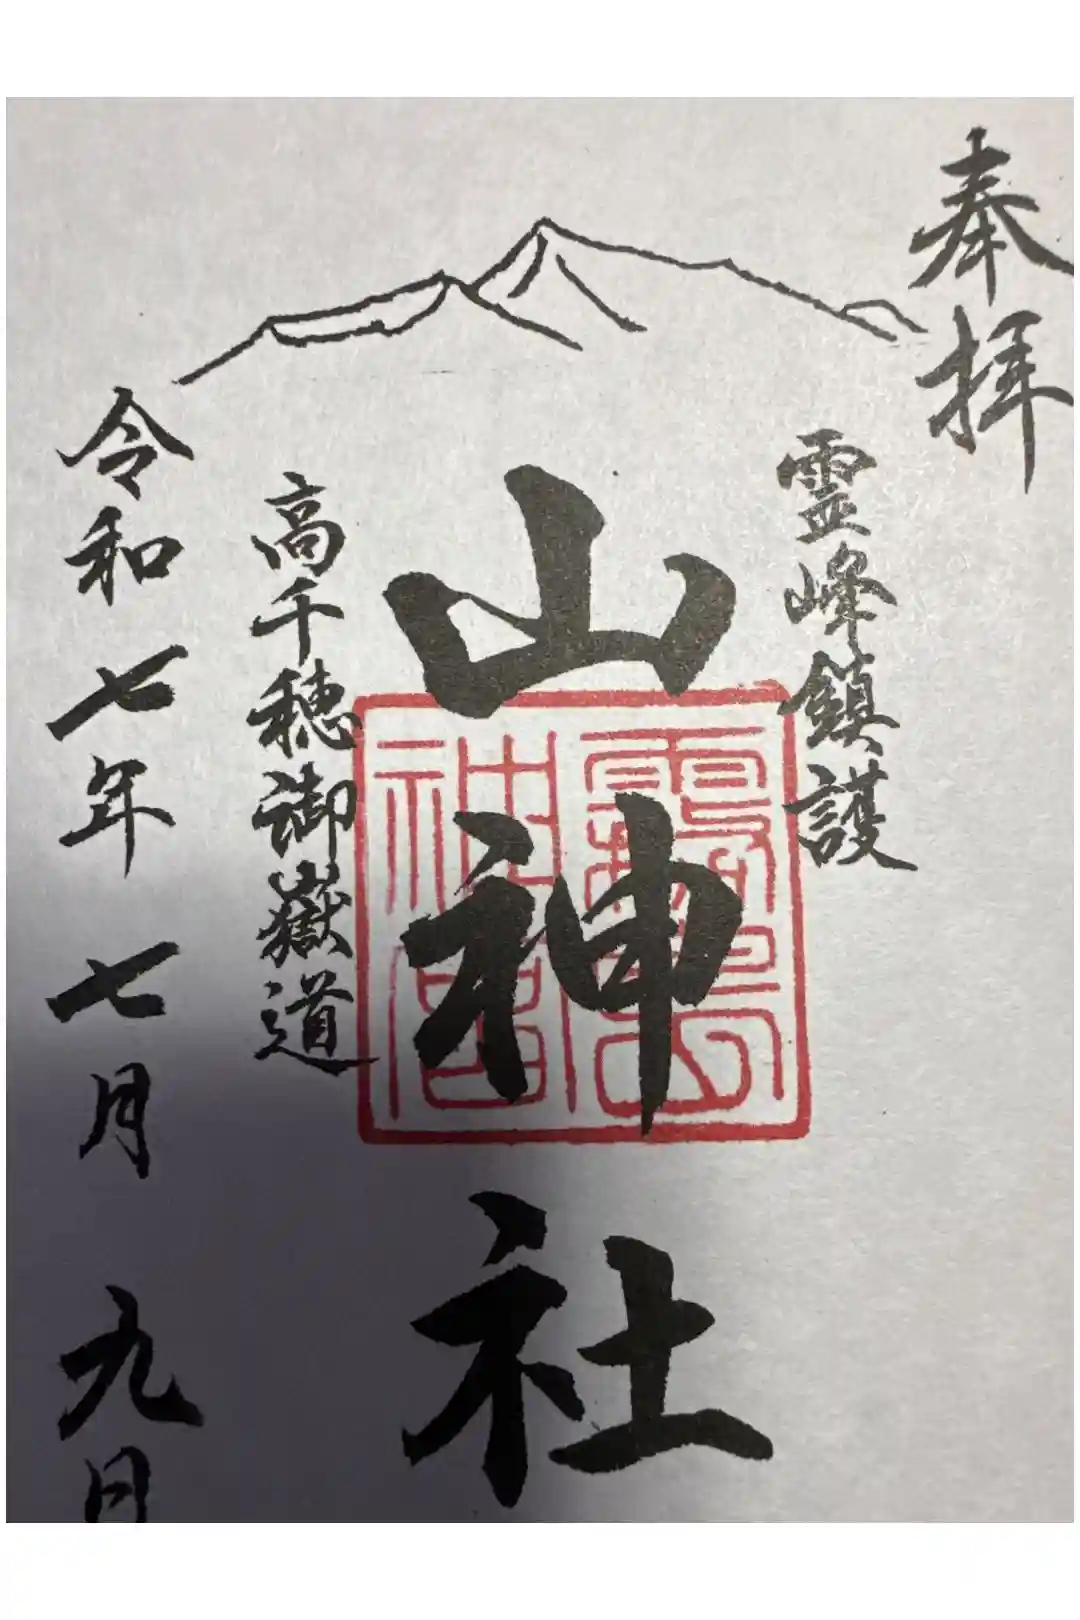 奉拝
霊峰鎮護
山神社
霧島神宮
高千穂御嶽道
令和七年七月九日